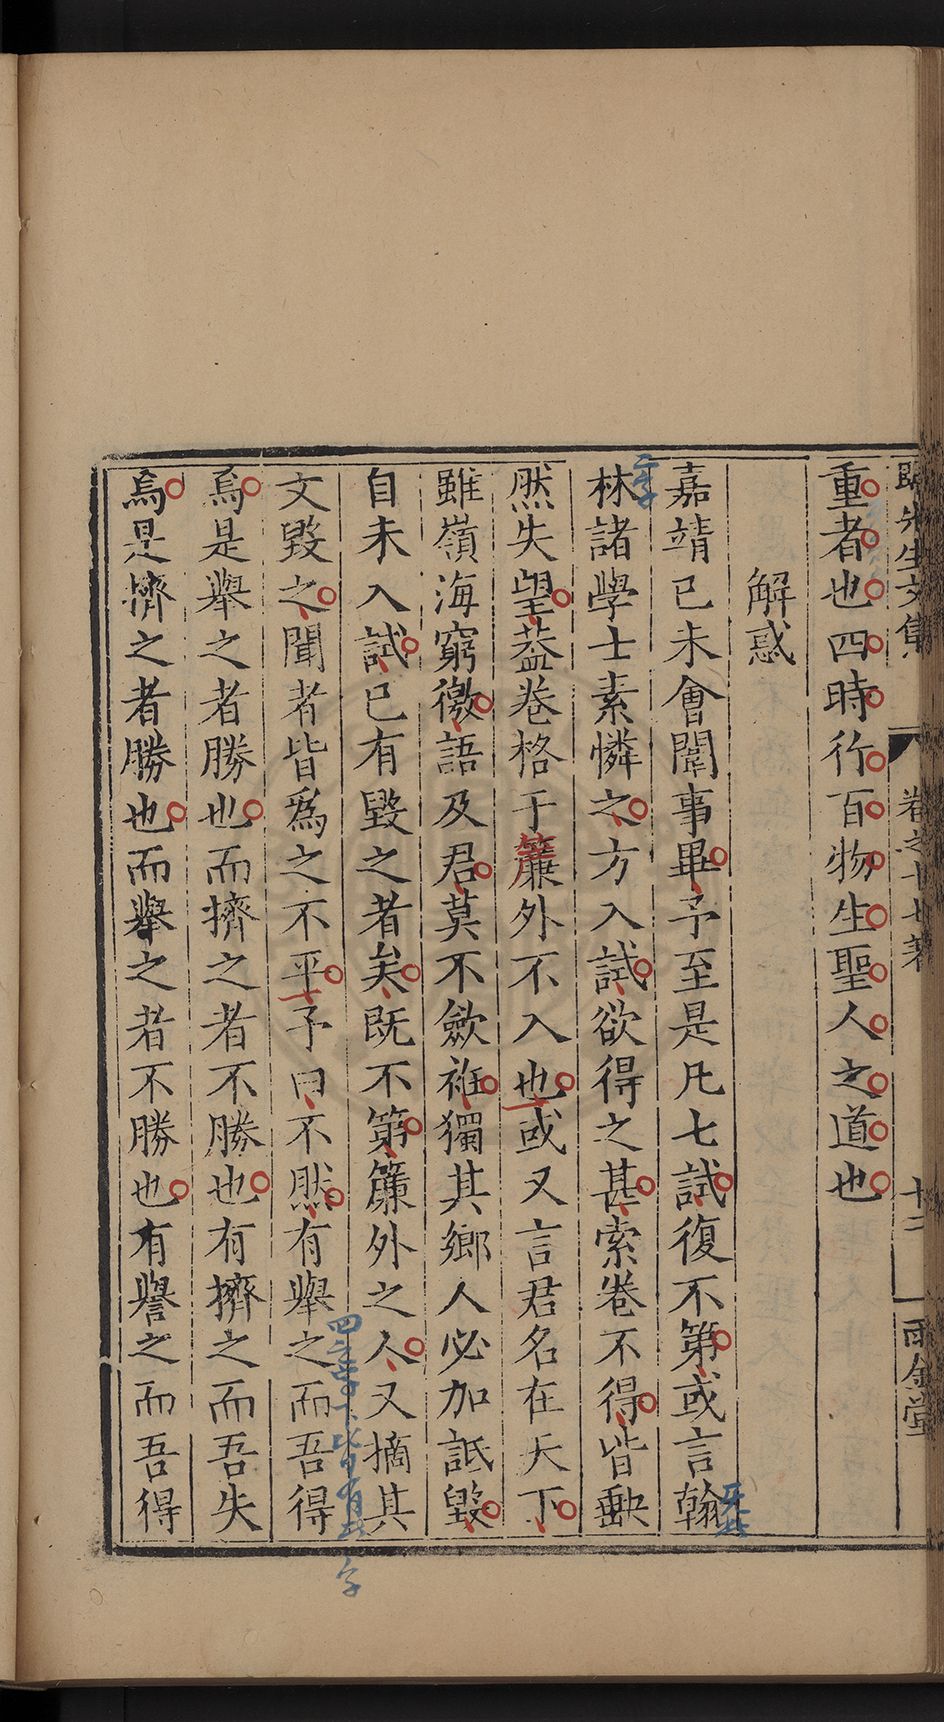 歸先生文集 卷之十七著 十二 雨金堂
重者也四時行百物生聖人之道也
解惑
嘉靖己未會闈事畢予至是凡七試復不第或言翰
林諸學士素憐之方入試欲得之甚索卷不得皆缺
然失望葢卷格于簾外不入也或又言君名在天下
雖嶺海窮徼語及君莫不歛袵獨其鄉人必加詆毀
自未入試已有毀之者矣既不第簾外之人又摘其
文毀之聞者皆爲之不平予曰不然有舉之而吾得
焉是舉之者勝也而擠之者不勝也有擠之而吾失
焉是擠之者勝也而舉之者不勝也有譽之而吾得